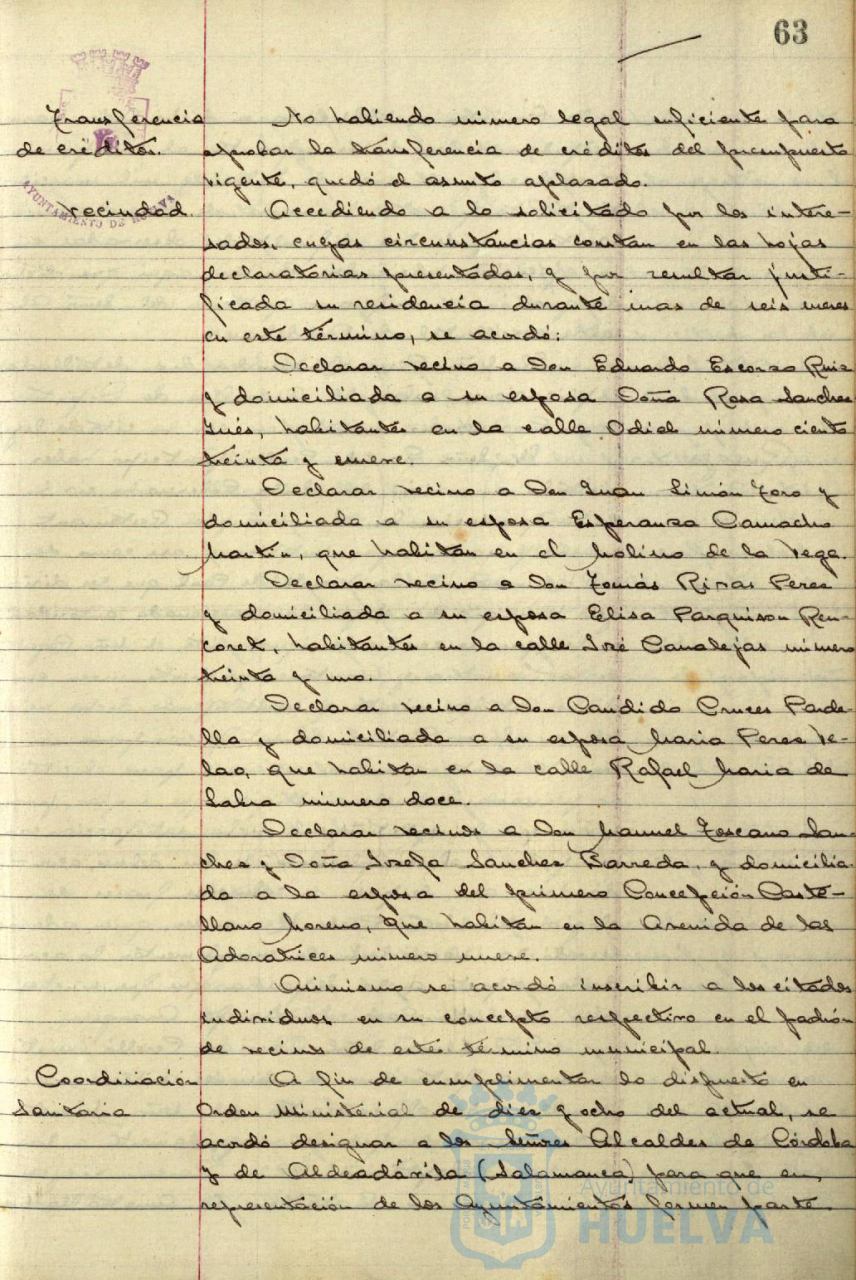 63
Transferencia
de créditos.
No habiendo número legal suficiente para
aprobar la transferencia de créditos del presupuesto
vigente, quedó el asunto aplazado.
AYUNTAMIENTO DE HUELVA
Vecindad.
Accediendo a lo solicitado por los intere-
sados, cuyas circunstancias constan en las hojas
declaratorias presentadas, y por resultar justi-
ficada su residencia durante mas de seis meses
en este término, se acordó:
Declarar vecino a Don Eduardo Escorza Ruiz
y domiciliada a su esposa Doña Rosa Sanchez
Inés, habitantes en la calle Odiel número ciento
treinta y nueve.
Declarar vecino a Don Juan Limón Toro y
domiciliada a su esposa Esperanza Camacho
Martin, que habitan en el Molino de la Vega.
Declarar vecino a Don Tomás Rivas Perez
y domiciliada a su esposa Elisa Parquison Ren-
coret, habitantes en la calle José Canalejas número
treinta y uno.
Declarar vecino a Don Candido Cruces Parde-
lla y domiciliada a su esposa Maria Perez Ve-
lao, que habitan en la calle Rafael Maria de
Labra número doce.
Declarar vecinos a Don Manuel Toscano San-
chez y Doña Josefa Sanchez Barreda, y domicilia-
da a la esposa del primero Concepción Caste-
llano Moreno, que habitan en la Avenida de las
Adoratrices número nueve.
Asimismo se acordó inscribir a los citados
individuos en su concepto respectivo en el padrón
de vecinos de este término municipal.
Coordinación
Sanitaria
A fin de cumplimentar lo dispuesto en
Orden Ministerial de diez y ocho del actual, se
acordó designar a los Señores Alcaldes de Córdoba
y de Aldeadávila (Salamanca) para que en
representación de los Ayuntamientos formen parte
Ayuntamiento de
HUELVA